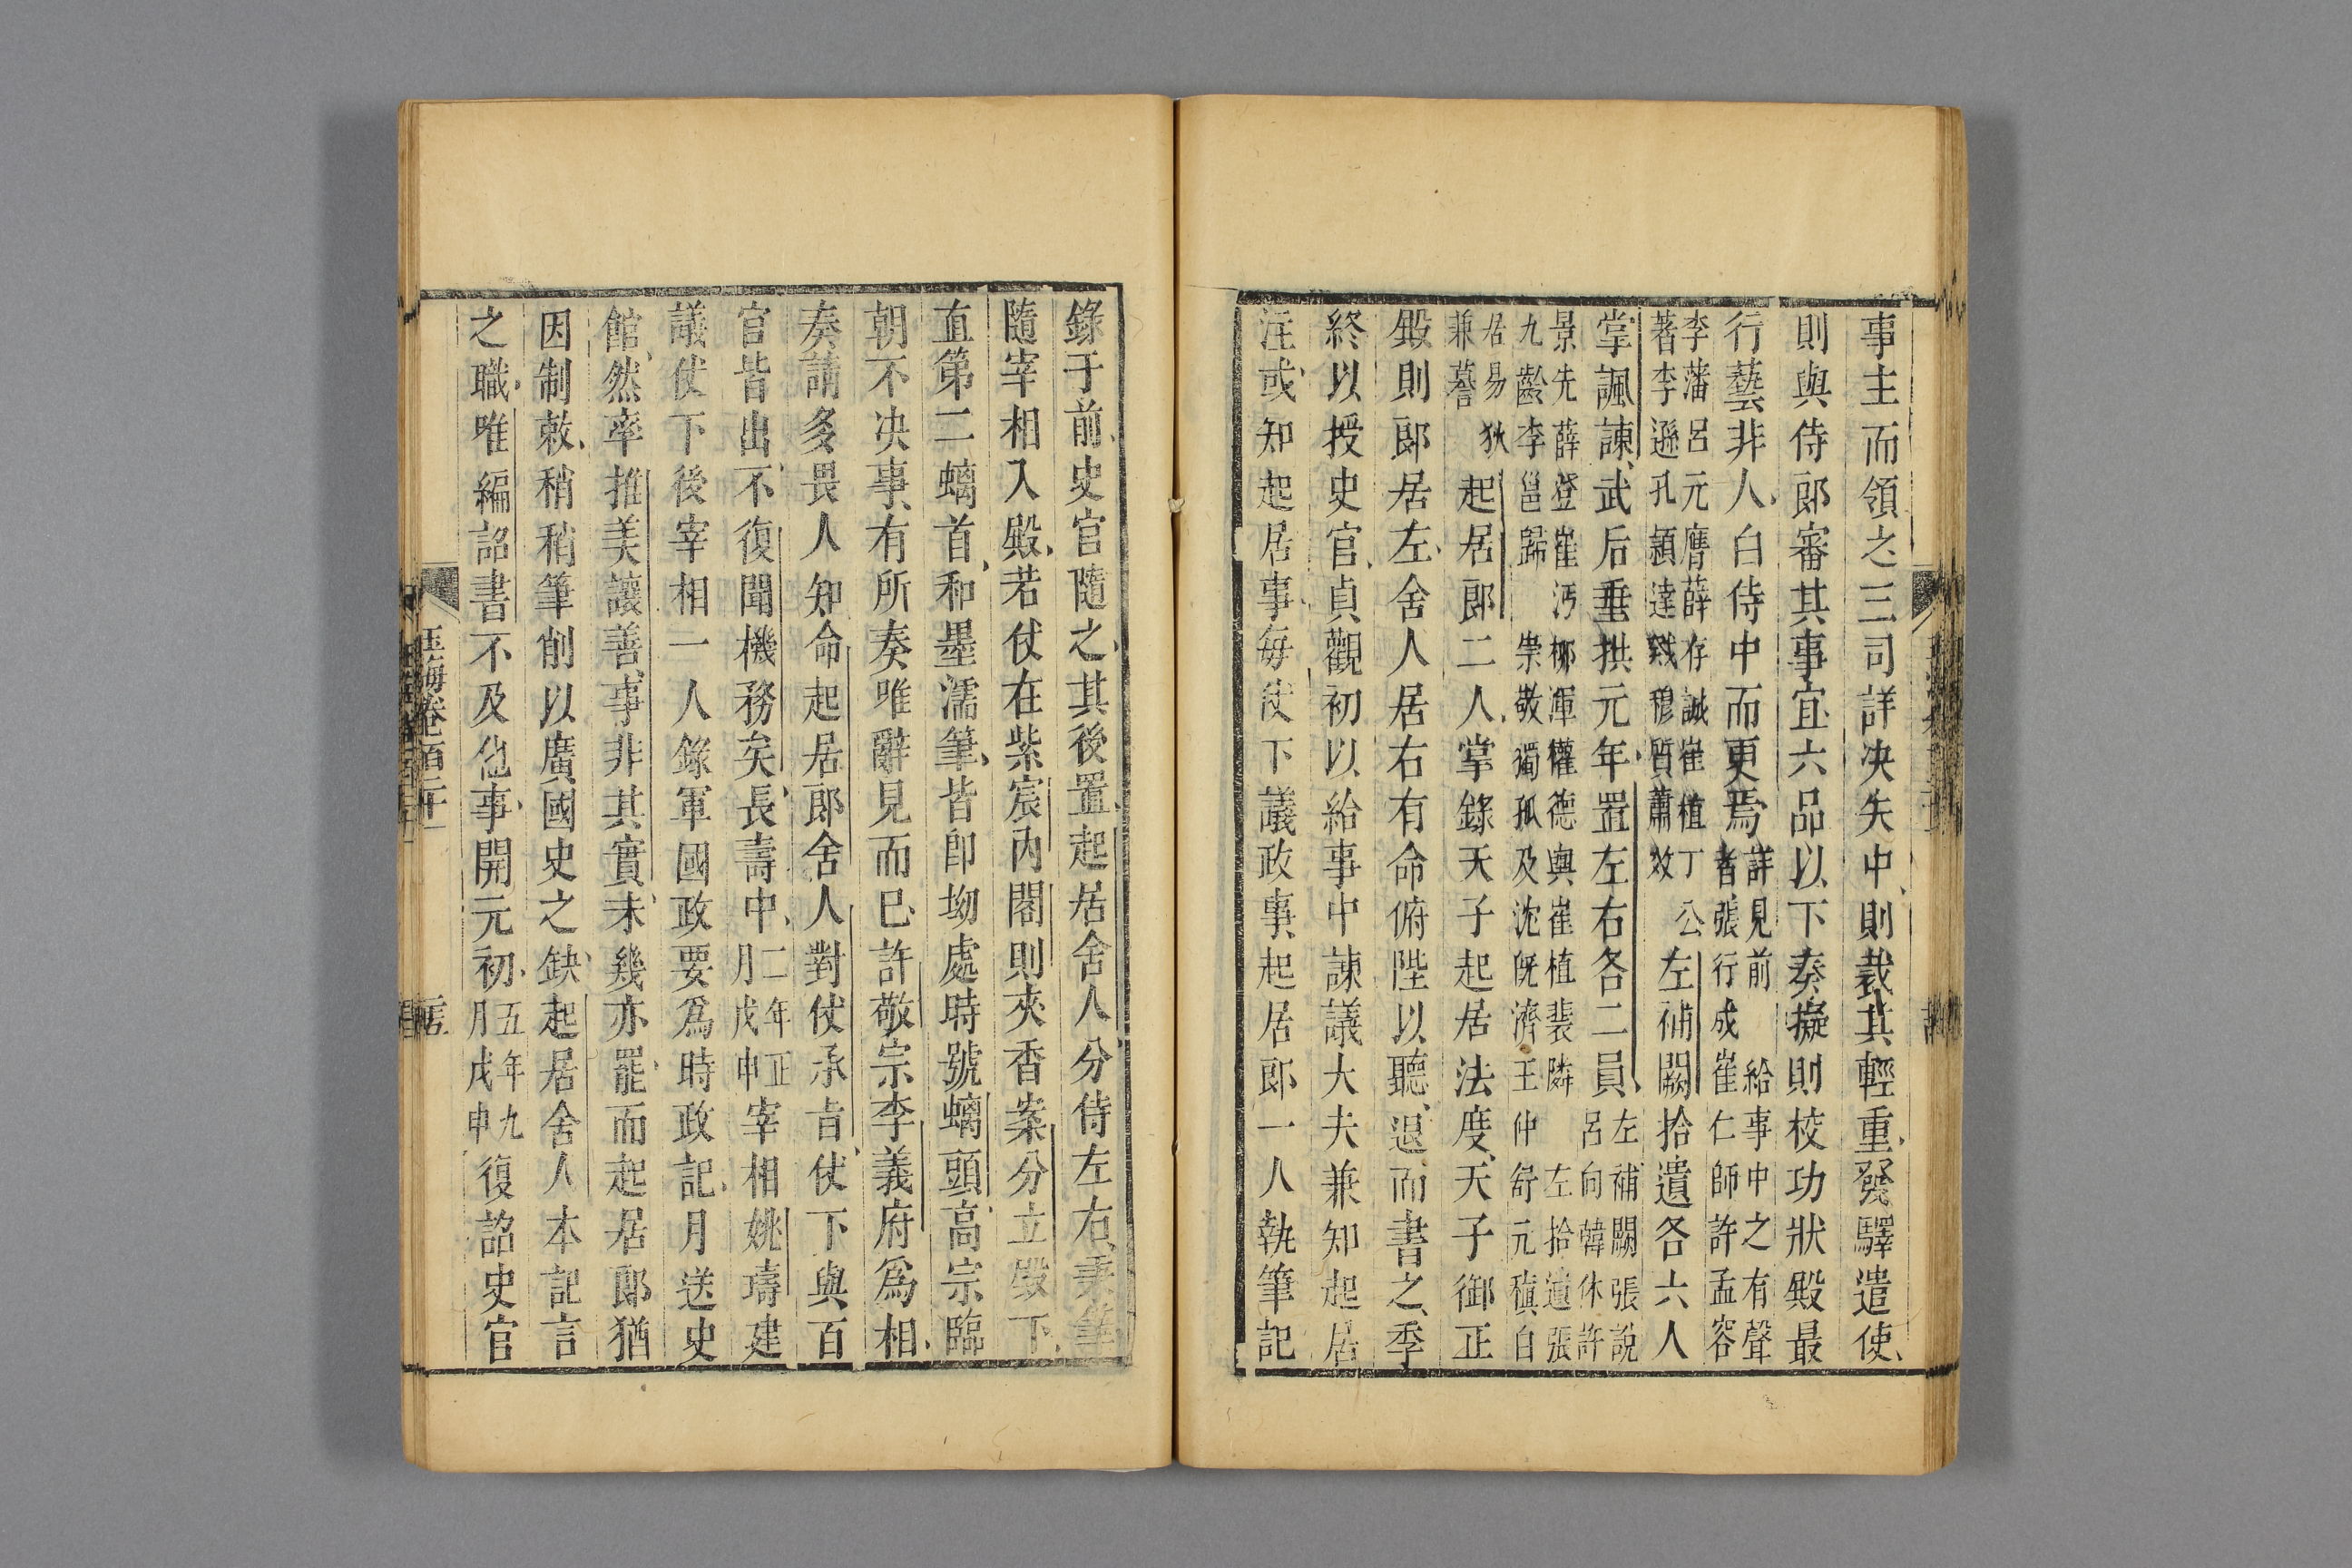 事主而領之三司詳決失中則裁其輕重發驛遣使
則與侍郎審其事宜六品以下奏擬則校功狀殿最
行藝非人白侍中而更焉詳見前 給事中之有聲
者張行成崔仁師許孟容
李藩呂元膺薛存誠崔植丁公
著李遜孔穎達戣穆質蕭俲左補闕拾遺各六人
掌諷諫武后垂拱元年置左右各二員左補闕張說
呂向韓休許
景先薛登崔沔柳渾權德輿崔植裴隣 左拾遺張
九齡李邕歸崇敬獨孤及沈旣濟王仲舒元稹白
居易狄
兼謩起居郎二人掌錄天子起居法度天子御正
殿則郎居左舍人居右有命俯陛以聽退而書之季
終以授史官貞觀初以給事中諫議大夫兼知起居
注或知起居事每仗下議政事起居郎一人執筆記
錄于前史官隨之其後置起居舍人分侍左右秉筆
隨宰相入殿若仗在紫宸內閤則夾香案分立殿下
直第二螭首和墨濡筆皆卽坳處時號螭頭高宗臨
朝不決事有所奏唯辭見而已許敬宗李義府爲相
奏請多畏人知命起居郎舍人對仗承旨仗下與百
官皆出不復聞機務矣長壽中二年正
月戊申宰相姚璹建
議仗下後宰相一人錄軍國政要爲時政記月送史
館然率推美讓善事非其實未幾亦罷而起居郎猶
因制敕稍稍筆削以廣國史之缺起居舍人本記言
之職唯編詔書不及他事開元初五年九
月戊申復詔史官
玉海卷一百二十一